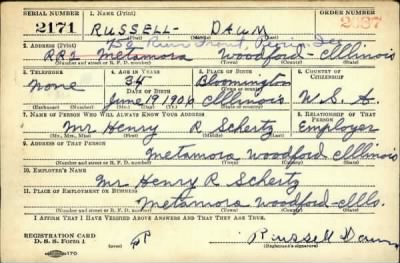 SERIAL NUMBER 1. NAME (Print) ORDER NUMBER
2171 RUSSELL - DAUM 2037
(First) (Middle) (Last)
2. ADDRESS (Print)
RR1 Metamora Woodford - Illinois
(Number and street or R. F. D. number) (Town) (County) (State)
3. TELEPHONE 4. AGE IN YEARS 5. PLACE OF BIRTH 6. COUNTRY OF CITIZENSHIP
None 34 Bloomington
DATE OF BIRTH (Town or county)
June 19 1906 Illinois U. S. A.
(Exchange) (Number) (Mo.) (Day) (Yr.) (State or country)
7. NAME OF PERSON WHO WILL ALWAYS KNOW YOUR ADDRESS 8. RELATIONSHIP OF THAT PERSON
Mr Henry R Schertz Employer
(Mr., Mrs., Miss) (First) (Middle) (Last)
9. ADDRESS OF THAT PERSON
Metamora Woodford - Illinois
(Number and street or R. F. D. number) (Town) (County) (State)
10. EMPLOYER'S NAME
Mr Henry R Schertz
11. PLACE OF EMPLOYMENT OR BUSINESS
Metamora Woodford - Ills.
(Number and street or R. F. D. number) (Town) (County) (State)
I AFFIRM THAT I HAVE VERIFIED ABOVE ANSWERS AND THAT THEY ARE TRUE.
REGISTRATION CARD
D. S. S. Form 1 Russell Daum
(Registrant's signature)